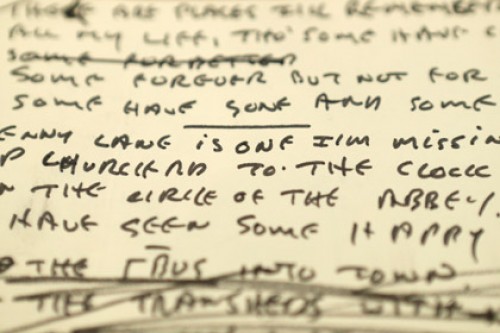 THERE ARE PLACES I'LL REMEMBER
ALL MY LIFE, THO' SOME HAVE C
SOME FOREVER BUT NOT FOR
SOME HAVE GONE AND SOME
ENNY LANE IS ONE I'M MISSIN
P CHURCH RD TO THE CLOCK
N THE CIRCLE OF THE ABBEY
HAVE SEEN SOME HAPPY
THE BUS INTO TOWN
THE TRAMSHEDS WITH